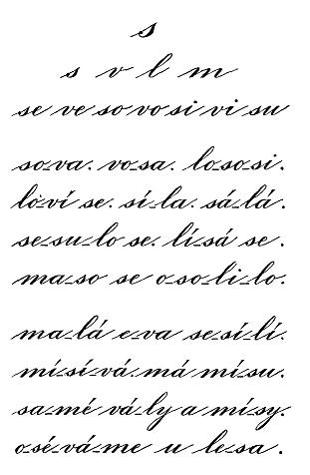 s
s v l m
se ve so vo si vi su
so-va. vo-sa. lo-so-si.
lo-ví se. sí-la. sá-lá.
se-su-lo se. lí-sá se.
ma-so se o-so-li-lo.
ma-lá e-va se-sí-lí.
mí-sí-vá-má mí-su.
sa-mé vá-ly a mí-sy.
o-sé-vá-me u le-sa.